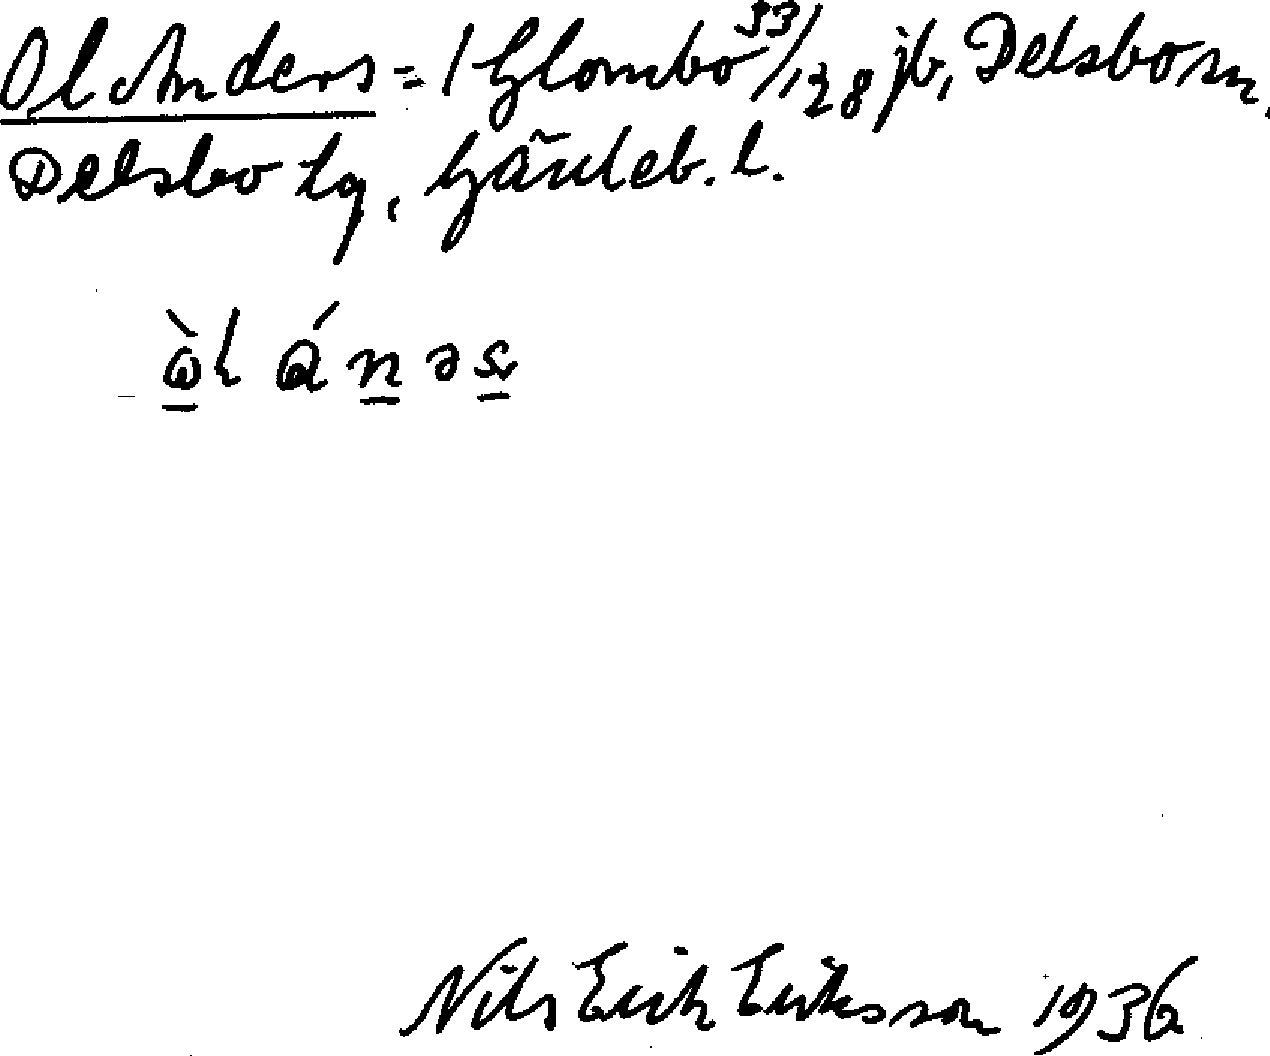 Ol Anders = 1 Glombo 33/128 jb, Delsbo sn,
Delsbo tg, Gävleb. l.
ὼl án̲əs̲
Nils Erik Eriksson 1936